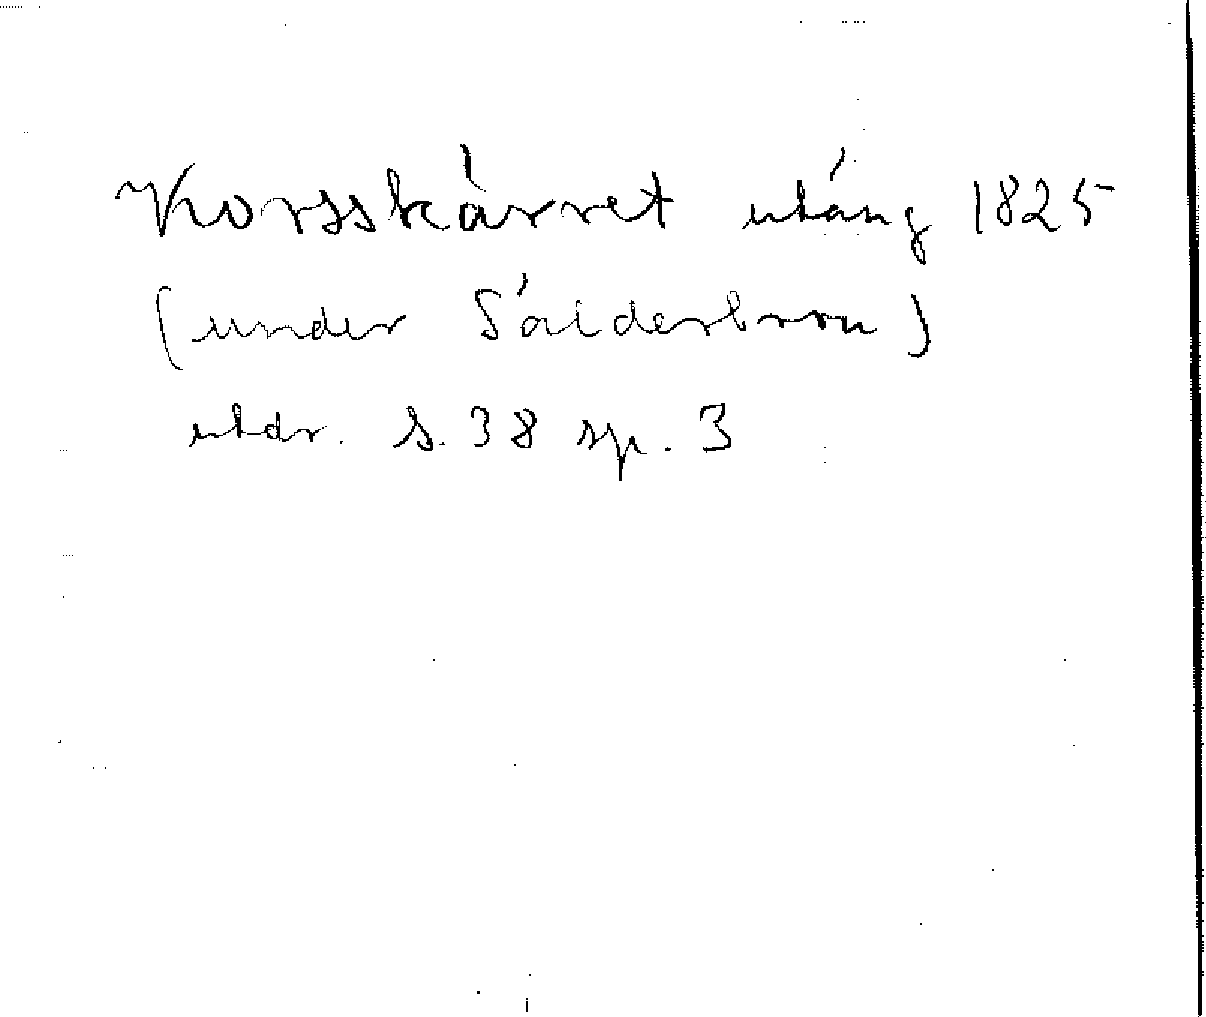 Korsskärret utäng 1825
(under Sälderbron)
utdr. s. 38 sp. 3